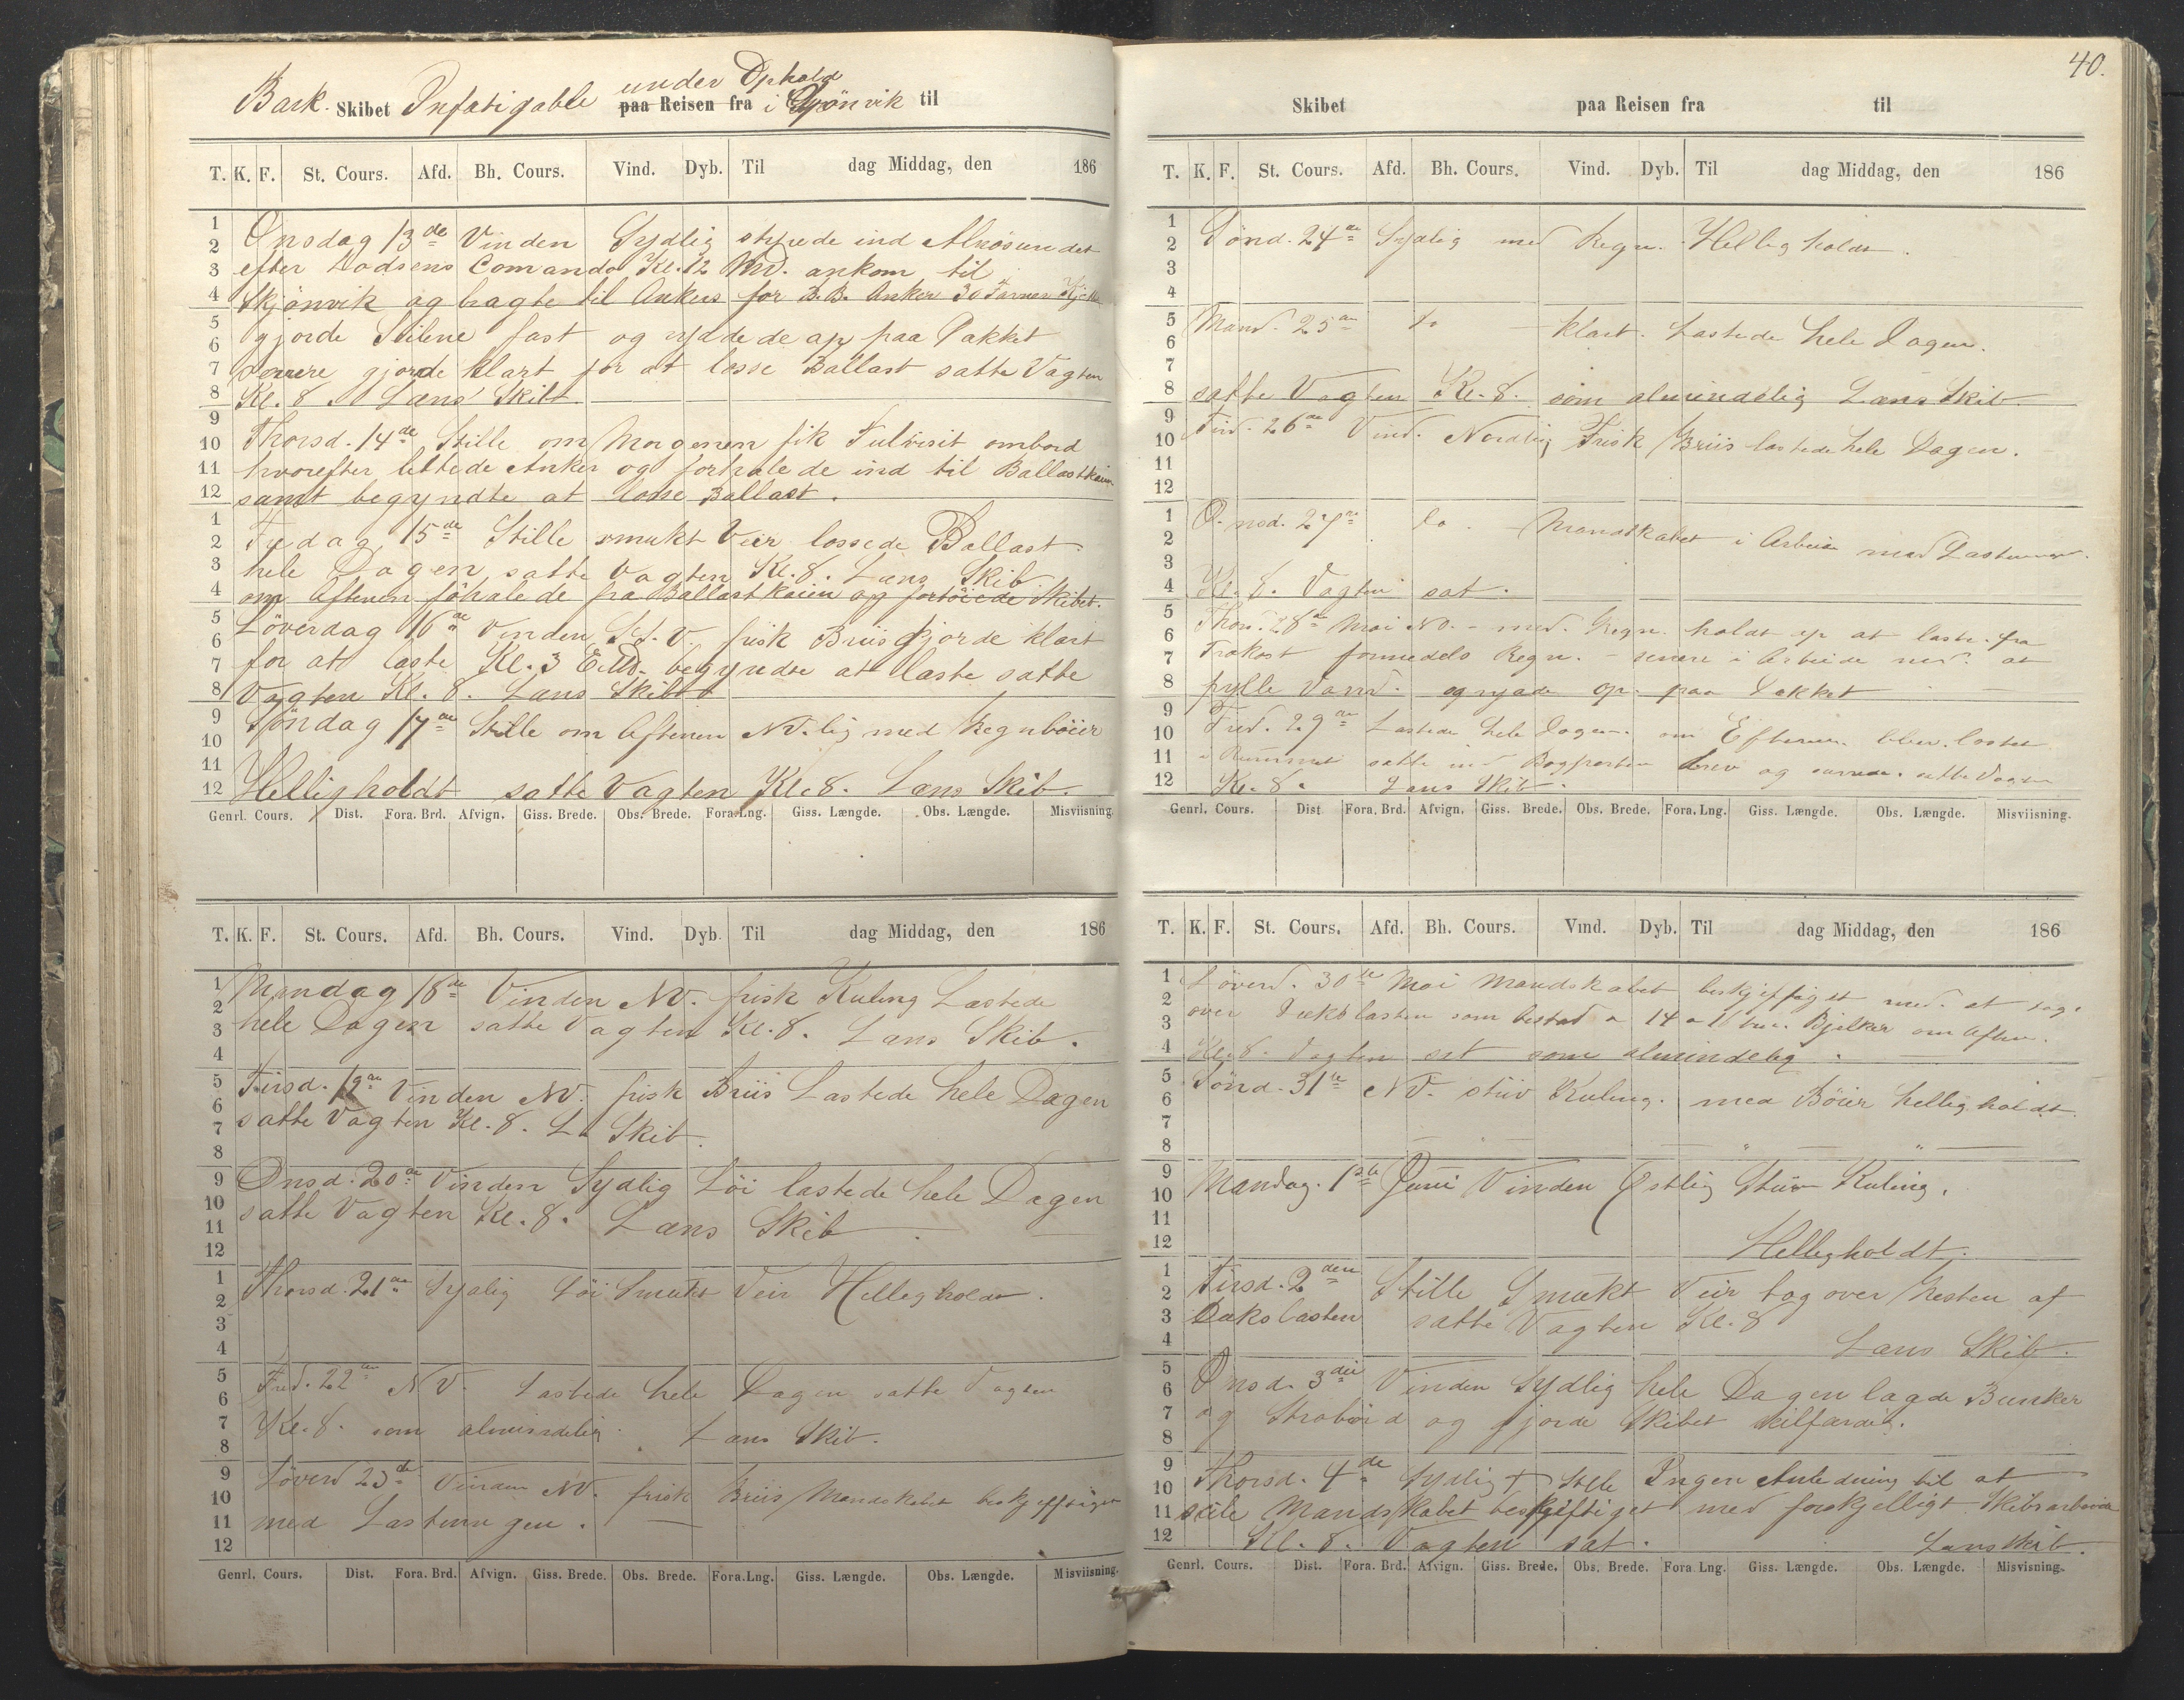 under Ophold
Bark Skibet Infatigable paa Reisen fra i Skjönvik til
T. K. F. St. Cours. Afd. Bh. Cours. Vind. Dyb. Til dag Middag, den 186
Onsdag 13de Vinden Sydlig styrede ind Alnösundet
efter Lodsens Comando Kl. 12 Md. ankom til
Skjönvik og bragte til Ankers for B.B. Anker 30 Favner
gjorde Seilene fast og ryddede op paa Dækket
senere gjorde klart for at losse Ballast satte Vagten
Kl. 8 Læns Skib
Thorsd. 14de Stille om Morgenen fik Tulvisit ombord
hvorefter lettede Anker og forhalede ind til Ballastkaien
samt begyndte at losse Ballast.
Fredag 15de Stille smukt Veir lossede Ballast
hele Dagen satte Vagten Kl. 8. Læns Skib
om Aftenen föhalede fra Ballastkaien og fortöiede Skibet.
Löverdag 16de Vinden S.V. frisk Briis Gjorde klart
for at laste Kl. 3 EMd. begyndte at laste satte
Vagten Kl. 8. Læns Skib
Söndag 17de Stille om Aftenen NV.lig med Regnböier
Helligholdt satte Vagten Kl. 8. Læns Skib.
Genrl. Cours. Dist. Fora. Brd. Afvign. Giss. Brede. Obs. Brede. Fora. Lng. Giss. Længde. Obs. Længde. Misviisning.
T. K. F. St. Cours. Afd. Bh. Cours. Vind. Dyb. Til dag Middag, den 186
Mandag 18de Vinden NV. frisk Kuling Lastede
hele Dagen satte Vagten Kl. 8. Læns Skib.
Tirsd. 19de Vinden NV. frisk Briis Lastede hele Dagen
satte Vagten Kl. 8. L. Skib.
Onsd. 20de Vinden Sydlig Löi lastede hele Dagen
satte Vagten Kl. 8. Læns Skib
Thorsd. 21de Sydlig Löi Smukt Veir Helligholdt.
Fred. 22de NV. Lastede hele Dagen satte Vagten
Kl. 8. som almindelig. Læns Skib.
Löverd 23de Vinden NV. frisk Briis Mandskabet beskjeftiget
med Lastningen.
Genrl. Cours. Dist. Fora. Brd. Afvign. Giss. Brede. Obs. Brede. Fora. Lng. Giss. Længde. Obs. Længde. Misviisning.
40.
Skibet paa Reisen fra til
T. K. F. St. Cours. Afd. Bh. Cours. Vind. Dyb. Til dag Middag, den 186
Sönd. 24de Sydlig med Regn. Helligholdt.
Mand. 25de do klart. Lastede hele Dagen.
satte Vagten Kl. 8. som almindelig Læns Skib
Tird. 26de Vind. Nordlig Frisk Briis lastede hele Dagen.
Onsd. 27de do. Mandskabet i Arbeide med Lastningen.
Kl. 8. Vagten sat.
Thors. 28de Mai NO. med Regn. holdt op at laste fra
Frokost formedels Regn. senere i Arbeide med at
fylle Vand. og ryade op paa Dækket
Fred. 29de Lastede hele Dagen. om Efterm. blev lastet
i Rummet satte ind Bogporten satte Vagten
Kl. 8. Læns Skib.
Genrl. Cours. Dist. Fora. Brd. Afvign. Giss. Brede. Obs. Brede. Fora. Lng. Giss. Længde. Obs. Længde. Misviisning.
T. K. F. St. Cours. Afd. Bh. Cours. Vind. Dyb. Til dag Middag, den 186
Löverd. 30te Mai Mandskabet beskjeftiget med at tage
over Dækslasten som bestod a 14 a 16 Bjelker om Aften.
Kl. 8. Vagten sat som almindelig.
Sönd. 31te NV. stiv Kuling. med Böier helligholdt.
Mandag. 1ste Juni Vinden Östlig Stiv Kuling.
Helligholdt.
Tirsd. 2den Stille Smukt Veir tog over Resten af
Dækslasten satte Vagten Kl. 8
Læns Skib.
Onsd. 3die Vinden Sydlig hele Dagen lagde Bunker
og og gjorde Skibet seilfærdig.
Thorsd. 4de Sydlig + Stille Ingen Anledning til at
seile Mandskabet beskjeftiget med forskjelligt Skibsarbeide
Kl. 8. Vagten sat. Læns Skib.
Genrl. Cours. Dist. Fora. Brd. Afvign. Giss. Brede. Obs. Brede. Fora Lng. Giss. Længde. Obs. Længde. Misvisning.